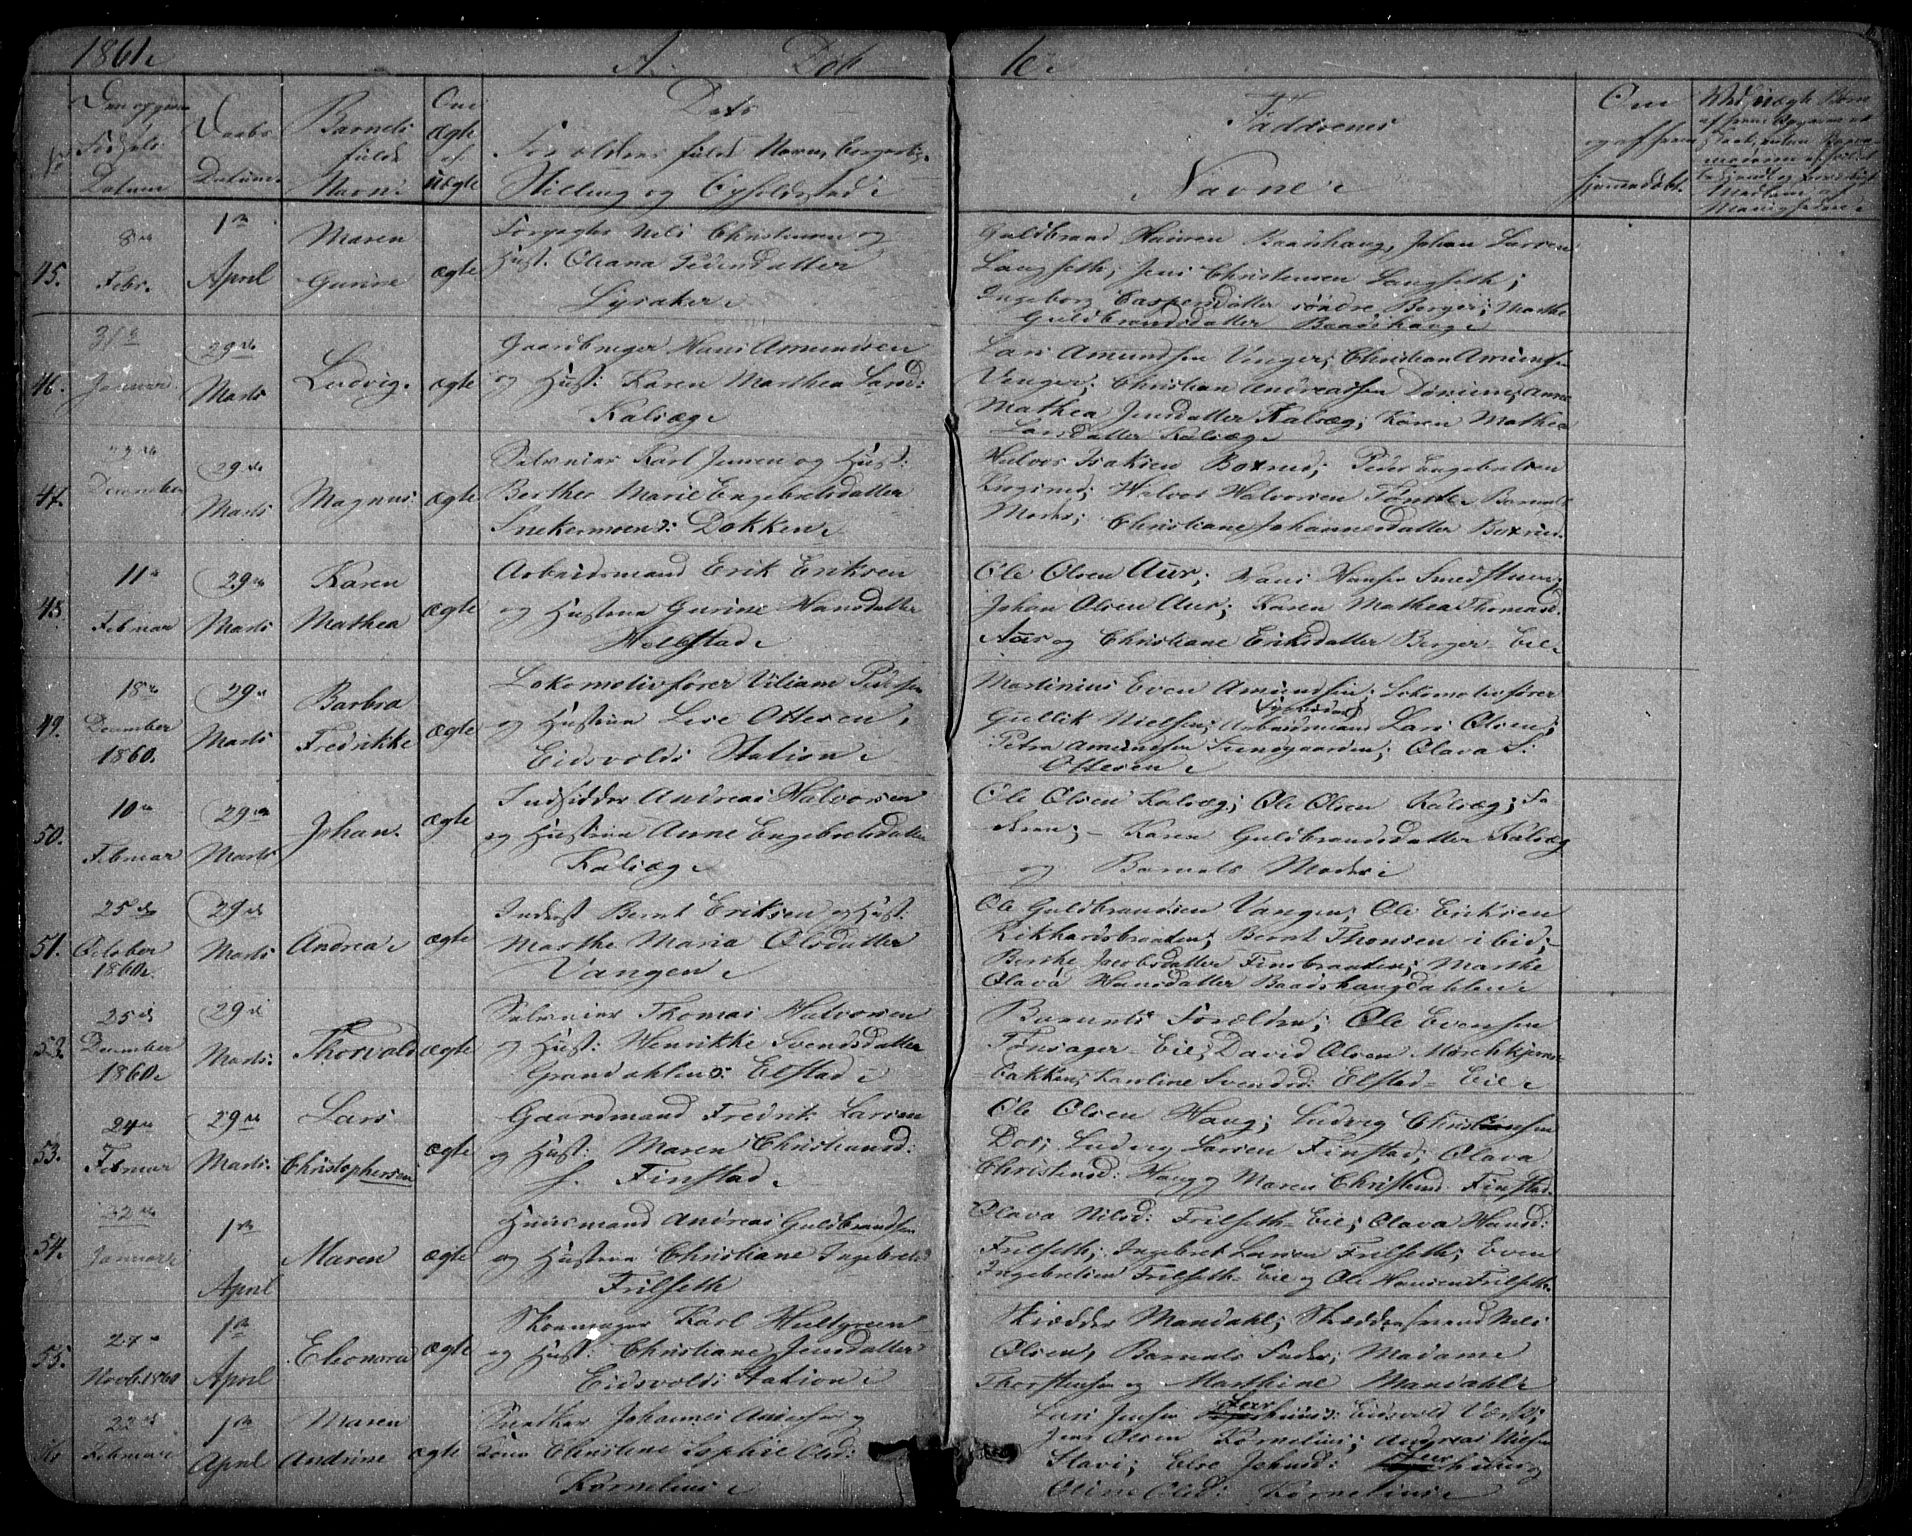 1861. A. Døb 6.
Datum
Daabs Datum
Barnets fulde Navn.
Om ægte el. uægte
Dets Forældres fulde Navne, borgerlige Stilling og Opholdsstæd.
Faddrenes Navne.
Om og af hvem hjemmedøbt.
45.
8de Febr.
1ste April
Maren Gurine
ægte
Nils Christensen og
Hust: Oliana Pedersdatter
Lysaker.
Guldbrand Hansen Baadshaug, Johan Larsen
Langseth; Jens Christensen Langseth;
Ingeborg Caspersdatter søndre Berger; Marthe
Guldbrandsdatter Baadshaug.
46.
31te Januar
29de Marts
Ludvig.
ægte
Gaardbruger Hans Amundsen
og Hust: Karen Marthea Larsd:
Kalsæg.
Lars Amundsen Venger; Christian Amundsen
Venger; Christian Andreassen Anne
Mathea Jensdatter Kalsæg; Karen Mathea
Larsdatter Kalsæg.
47.
December
29de Marts
Magnus.
ægte
Karl Jensen og Hust:
Berthe Marie Engebretsdatter
Snekermoen u: Dokken.
Halvor Isaksen Boxrud; Peder Engebretsen
Halvor Halvorsen Barnets
Moder; Christiane Johannesdatter Boxrud.
48.
11te Februar
29de Marts
Karen Mathea
ægte
Arbeidsmand Erik Eriksen
og Hustru Gurine Hansdatter
Ole Olsen Aur; Hans Hansen Smedstuen;
Johan Olsen Aur; Karen Mathea Thomasd.
Aur og Christiane Eriksdatter Berger-Eie.
49.
18de December 1860.
29de Marts
Barbra Fredrikke
ægte
Lokomotivfører Viliam Pedersen
og Hustru Lise Ottesen,
Eidsvolds Station.
Martinius Even Amundsen; Lokomotivfører
Gullik Nielsen; Arbeidsmand Lars Olsen;
Petra Amundsen Sundgaarden; Olava S.
Ottesen.
50.
10de Februar
29de Marts
Johan.
ægte
Indsidder Andreas Halvorsen
og Hustru Anne Engebretsdatter
Kalsæg.
Ole Olsen Kalsæg; Ole Olsen Kalsæg; Fa-
deren; - Karen Guldbrandsdatter Kalsæg
og Barnets Moder.
51.
25de October 1860.
29de Marts
Andrea.
ægte
Inderst Bernt Eriksen og Hust:
Marthe Maria Olsdatter
Vangen.
Ole Guldbrandsen Vangen; Ole Eriksen
Rikhardsbraaten; Bernt Thomsen ibid;
Berthe Jacobsdatter Finsbraaten; Marthe
Olava Hansdatter Baadshaugdahlen.
52.
25de December 1860.
29de Marts.
Thorvald
ægte
Thomas Halvorsen
og Hust: Henrikke Svendsdatter
Grandahlen u: Elstad.
Barnets Forældre; Ole Evensen
Tønsager-Eie; David Olsen Mørchkjern-
bakken; Karoline Svendsd: Elstad-Eie.
53.
24de Februar
29de Marts.
Lars Christophersen
ægte
Gaardmand Fredrik Larsen
og Hust: Maren Christiansd:
Finstad.
Ole Olsen Haug; Ludvig Christiansen
Dos; Ludvig Larsen Finstad; Olava
Christiansd: Haug og Maren Christiansd. Finstad.
54.
22de Januar
1ste April
Maren
ægte
Huusmand Andreas Guldbrandsen
og Hustru Christiane Ingebretsd.
Frilseth
Olava Nilsd: Frilseth-Eie; Olava Hansd:
Frilseth; Ingebret Larsen Frilseth; Even
Ingebretsen Frilseth-Eie og Ole Hansen Frilseth.
55.
27de Novbr. 1860
1ste April
Eleonora
ægte
Skomager Karl Hultgreen
og Hust: Christiane Jensdatter
Eidsvolds Station.
Skrædder Mandahl; Nils
Olsen, Barnets Fader; Madame
Thorstensen og Marthine Mandahl.
56
22de Februar
1ste April
Maren Andrine
ægte
Johannes Andersen og
Christine Sophie Olsd:
Kornelius.
Lars Jensen Eidsvold Værk;
Jens Olsen Kornelius; Andreas Nilsen
Stavi; Else Johnsd:
Oline Olsd: Kornelius.